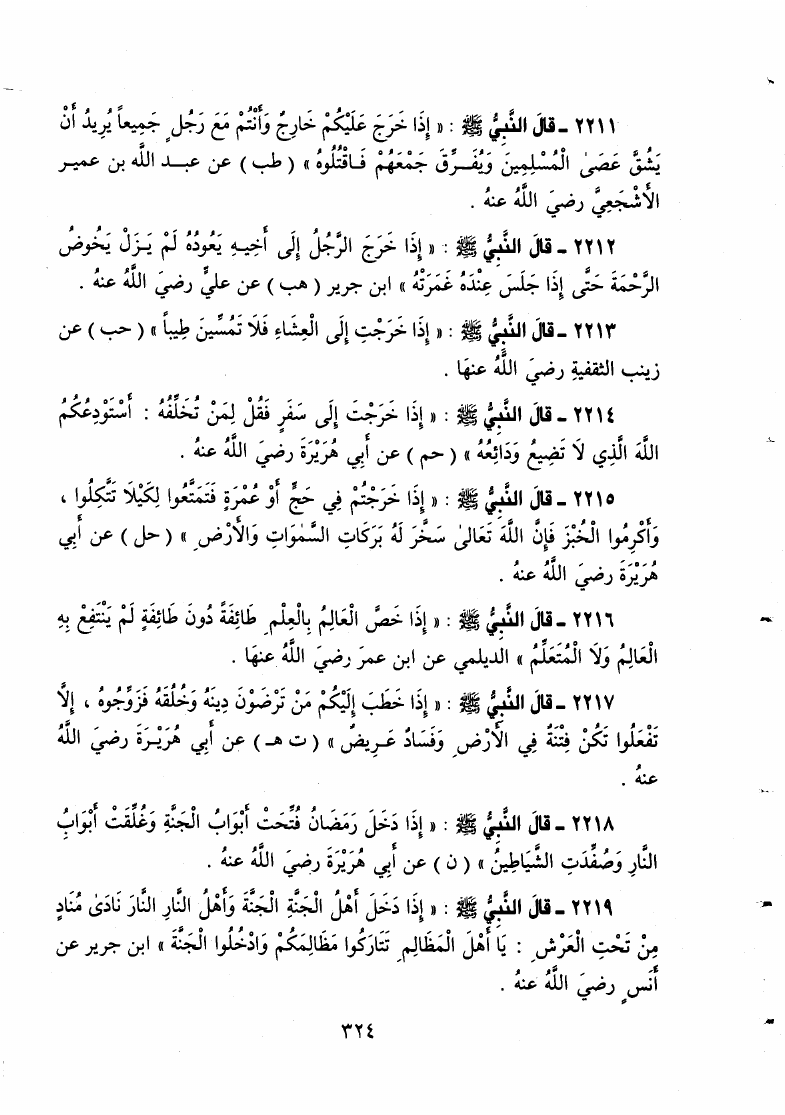 ٢٢١١ ـ قالَ النَّبِيُّ ﷺ : « إِذَا خَرَجَ عَلَيْكُمْ خَارِجٌ وَأَنْتُمْ مَعَ رَجُلٍ جَمِيعاً يُرِيدُ أَنْ
يَشُقَّ عَصَى الْمُسْلِمِينَ وَيُفَـرِّقَ جَمْعَهُمْ فَـاقْتُلُوهُ » ( طب ) عن عبـد الله بن عميـر
الأَشْجَعِيَّ رضيَ اللَّهُ عنهُ .
٢٢١٢ ـ قالَ النَّبِيُّ ﷺ : « إِذَا خَرَجَ الرَّجُلُ إِلَى أَخِيـهِ يَعُودُهُ لَمْ يَـزَلْ يَخُوضُ
الرَّحْمَةَ حَتَّى إِذَا جَلَسَ عِنْدَهُ غَمَرَتْهُ » ابن جرير ( هب ) عن عليٍّ رضيَ اللَّهُ عنهُ .
٢٢١٣ ـ قالَ النَّبِيُّ ﷺ : « إِذَا خَرَجْتِ إِلَى الْعِشَاءِ فَلَا تَمَسِّينَ طِيباً » ( حب ) عن
زينب الثقفيةِ رضيَ اللَّهُ عنهَا .
٢٢١٤ ـ قالَ النَّبِيُّ ﷺ : « إِذَا خَرَجْتَ إِلَى سَفَرٍ فَقُلْ لِمَنْ تُخَلِّفُهُ : أَسْتَوْدِعُكُمُ
اللَّهَ الَّذِي لَا تَضِيعُ وَدَائِعُهُ » ( حم ) عن أَبي هُرَيْرَةَ رضيَ اللَّهُ عنهُ .
٢٢١٥ ـ قالَ النَّبِيُّ ﷺ : « إِذَا خَرَجْتُمْ فِي حَجٍّ أَوْ عُمْرَةٍ فَتَمَتَّعُوا لِكَيْلَا تَتَّكِلُوا ،
وَأَكْرِمُوا الْخُبْزَ فَإِنَّ اللَّهَ تَعَالَى سَخَّرَ لَهُ بَرَكَاتِ السَّمٰوَاتِ وَالْأَرْضِ » ( حل ) عن أَبي
هُرَيْرَةَ رضيَ اللَّهُ عنهُ .
٢٢١٦ ـ قالَ النَّبِيُّ ﷺ : « إِذَا خَصَّ الْعَالِمُ بِالْعِلْمِ طَائِفَةً دُونَ طَائِفَةٍ لَمْ يَنْتَفِعْ بِهِ
الْعَالِمُ وَلَا الْمُتَعَلِّمُ » الديلمي عن ابن عمرَ رضيَ اللَّهُ عنهَا .
٢٢١٧ ـ قالَ النَّبِيُّ ﷺ : « إِذَا خَطَبَ إِلَيْكُمْ مَنْ تَرْضَوْنَ دِينَهُ وَخُلُقَهُ فَزَوِّجُوهُ ، إِلَّا
تَفْعَلُوا تَكُنْ فِتْنَةٌ فِي الْأَرْضِ وَفَسَادٌ عَـرِيضٌ » ( ت هـ ) عن أَبي هُرَيْـرَةَ رضيَ اللَّهُ
عنهُ .
٢٢١٨ ـ قالَ النَّبِيُّ ﷺ : « إِذَا دَخَلَ رَمَضَانُ فُتِّحَتْ أَبْوَابُ الْجَنَّةِ وَغُلِّقَتْ أَبْوَابُ
النَّارِ وَصُفِّدَتِ الشَّيَاطِينُ » ( ن ) عن أَبي هُرَيْرَةَ رضيَ اللَّهُ عنهُ .
٢٢١٩ ـ قالَ النَّبِيُّ ﷺ : « إِذَا دَخَلَ أَهْلُ الْجَنَّةِ الْجَنَّةَ وَأَهْلُ النَّارِ النَّارَ نَادَىٰ مُنَادٍ
مِنْ تَحْتِ الْعَرْشِ : يَا أَهْلَ الْمَظَالِمِ تَتَارَكُوا مَظَالِمَكُمْ وَادْخُلُوا الْجَنَّةَ » ابن جرير عن
أَنَسٍ رضيَ اللَّهُ عنهُ .
٣٢٤